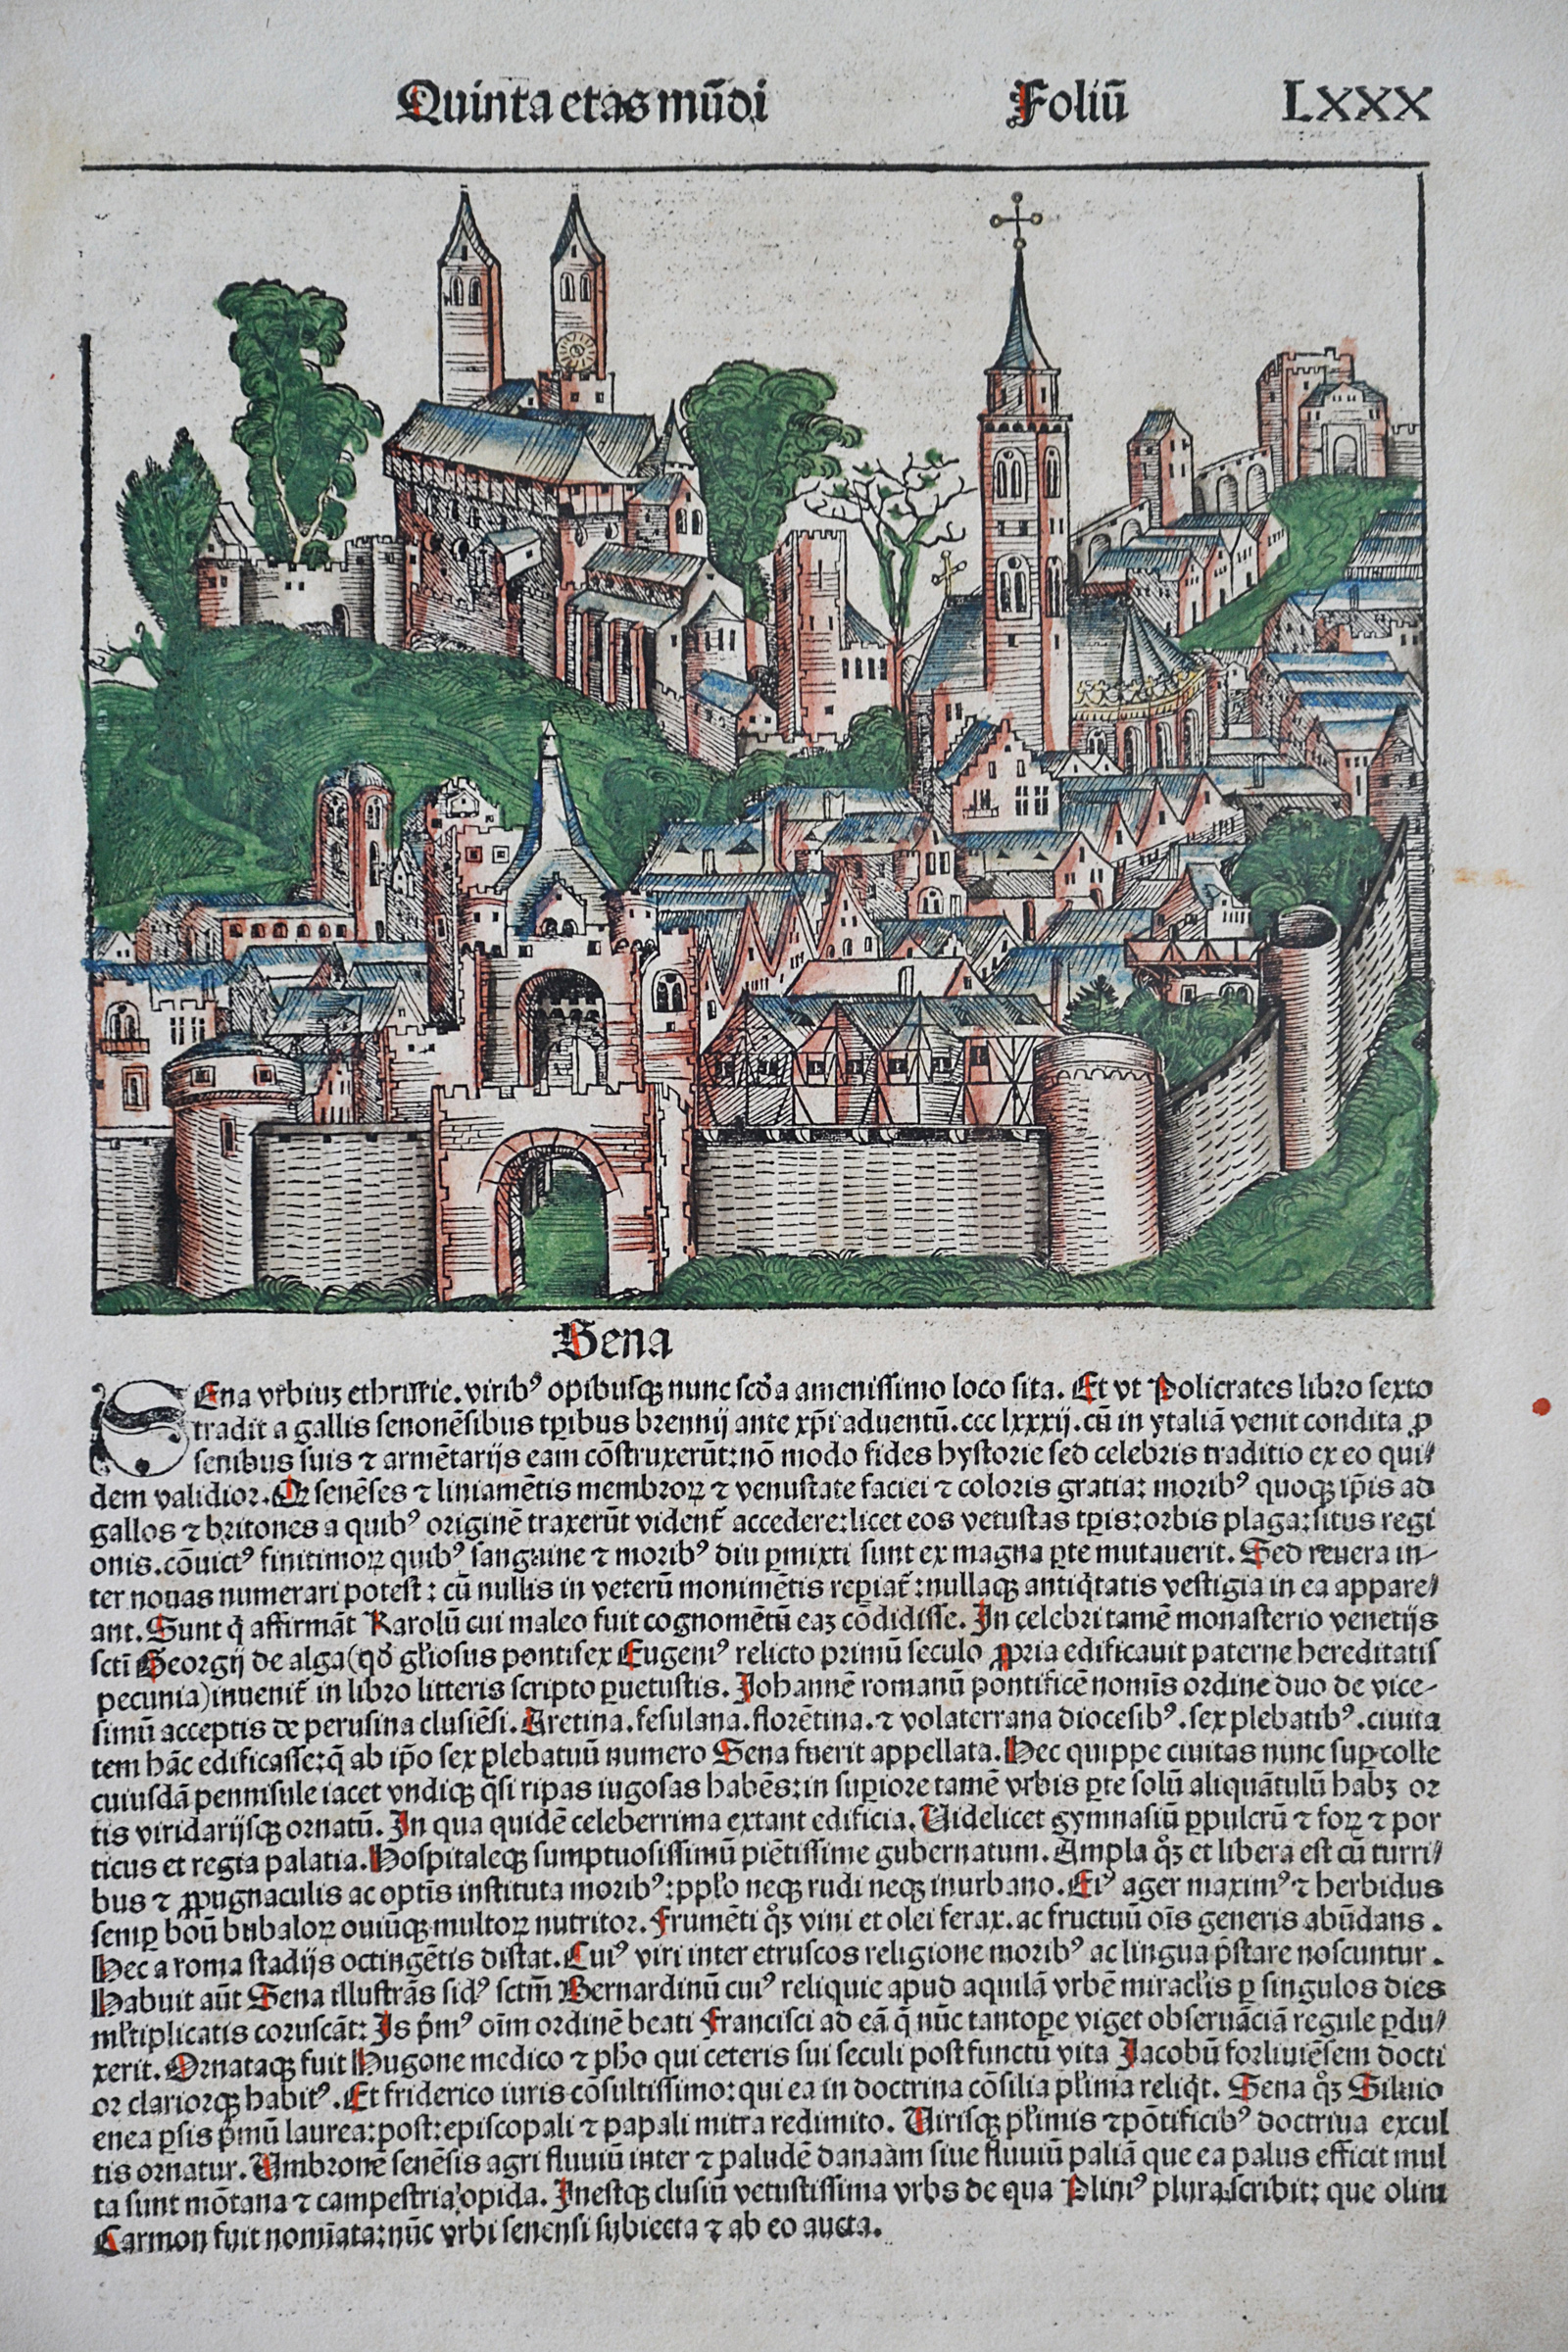 Quinta etas mūdi Foliū LXXX
Sena
SEna vrbiuz ethrurie. viribꝰ opibusqꝫ nunc scďa amenissimo loco sita. Et vt Policrates libro sexto
tradit a gallis senonēsibus tꝑibus brennij ante xp̄i aduentū. ccc lxxxij. cū in ytaliā venit condita ꝓ
senibus suis ⁊ armētarijs eam cōstruxerūt: nō modo fides hystorie sed celebris traditio ex eo qui⸗
dem validior. Qꝛ senēses ⁊ liniamētis membroꝝ ⁊ venustate faciei ⁊ coloris gratia: moribꝰ quoqꝫ ip̄is ad
gallos ⁊ britones a quibꝰ originē traxerūt vident̄ accedere: licet eos vetustas tꝑis: orbis plaga: situs regi
onis. cōuictꝰ finitimoꝝ quibꝰ sanguine ⁊ moribꝰ diu ꝑmixti sunt ex magna ꝑte mutauerit. Sed reuera in⸗
ter nouas numerari potest: cū nullis in veterū monimētis reꝑiat̄: nullaqꝫ antiq̇tatis vestigia in ea appare⸗
ant. Sunt q̇ affirmāt Karolū cui maleo fuit cognomētū eaꝫ cōdidisse. In celebri tamē monasterio venetijs
sctī Georgij de alga (qď gl̄iosus pontifex Eugeniꝰ relicto primū seculo ꝓpria edificauit paterne hereditatis
pecunia) inuenit̄ in libro litteris scripto ꝑuetustis. Johannē romanū pontificē nomīs ordine duo de vice⸗
simū acceptis de perusina clusiēsi. Aretina. fesulana. florētina. ⁊ volaterrana diocesibꝰ. sex plebatibꝰ. ciuita
tem hāc edificasse: q̄ ab ip̄o sex plebatuū numero Sena fuerit appellata. Hec quippe ciuitas nunc suꝑ colle
cuiusdā pennisule iacet vndiqꝫ q̄si ripas iugosas habēs: in suꝑiore tamē vrbis ꝑte solū aliquātulū habꝫ or
tis viridarijsqꝫ ornatū. In qua quidē celeberrima extant edificia. Videlicet gymnasiū ꝑpulcrū ⁊ foꝝ ⁊ por
ticus et regia palatia. Hospitaleqꝫ sumptuosissimū piētissime gubernatum. Ampla qͦꝫ et libera est cū turri⸗
bus ⁊ ꝓpugnaculis ac optīs instituta moribꝰ: ppl̄o neqꝫ rudi neqꝫ inurbano. Eiꝰ ager maximꝰ ⁊ herbidus
semꝑ boū bubaloꝝ ouiūqꝫ multoꝝ nutritor. Frumēti qͦꝫ vini et olei ferax. ac fructuū oīs generis abūdans.
Hec a roma stadijs octingētis distat. Cuiꝰ viri inter etruscos religione moribꝰ ac lingua p̄stare noscuntur.
Habuit aūt Sena illustrās sidꝰ sctm̄ Bernardinū cuiꝰ reliquie apud aquilā vrbē miracl̄is ꝑ singulos dies
ml̄tiplicatis coruscāt: Is p̄mꝰ oīm ordinē beati Francisci ad eā q̄ nūc tantoꝑe viget obseruāciā regule ꝑdu⸗
xerit. Ornataqꝫ fuit Hugone medico ⁊ pħo qui ceteris sui seculi post functū vita Jacobū forliuiēsem docti
or clariorqꝫ habitꝰ. Et friderico iuris cōsultissimo: qui ea in doctrina cōsilia pl̄ima reliq̇t. Sena qͦꝫ Siluio
enea ꝑsis p̄mū laurea: post: episcopali ⁊ papali mitra redimito. Virisqꝫ pl̄imis ⁊ pōtificibꝰ doctrina excul
tis ornatur. Vmbronē senēsis agri fluuiū inter ⁊ paludē danaam siue fluuiū paliā que ea palus efficit mul
ta sunt mōtana ⁊ campestria opida. Inestqꝫ clusiū vetustissima vrbs de qua Pliniꝰ plura scribit: que olim
Carmon fuit nomīata: nūc vrbi senensi subiecta ⁊ ab eo aucta.